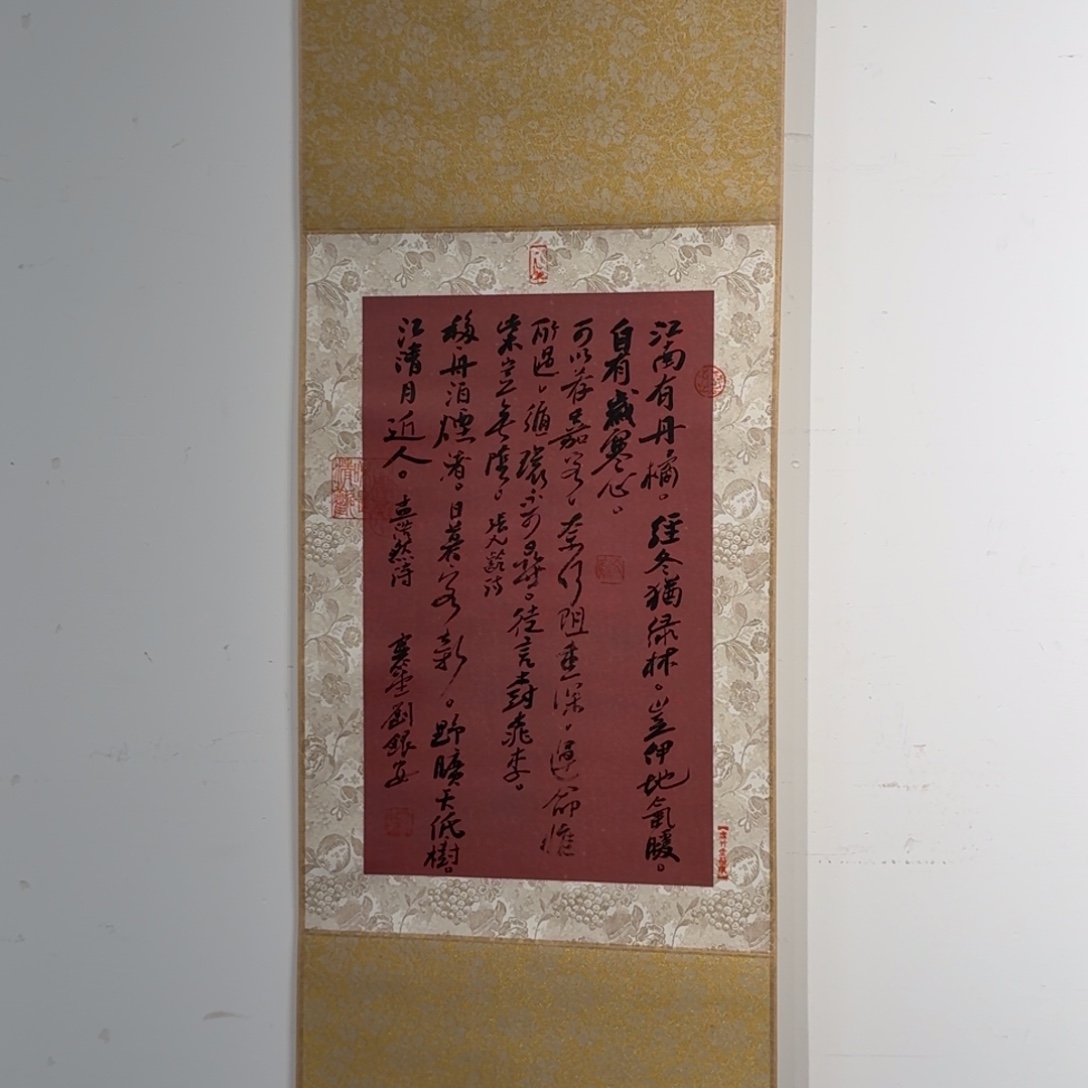 江南有丹橘。經冬猶绿林。豈伊地氣暖。
自有歲寒心。
可以荐嘉客，奈何阻重深，運命惟
所遇，循環不可尋。徒言樹桃李。
此木豈無陰。張九齡诗
移舟泊煙渚。日暮客新。野曠天低樹。
江清月近人。孟浩然诗 劉銀安